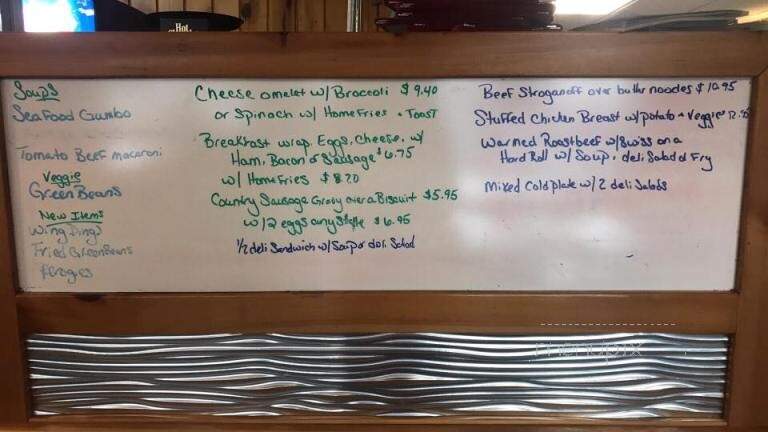 Hot
Soups
Seafood Gumbo
Tomato Beef macaroni
Veggie
Green Beans
New Items
Wing Dings
Fried Green Beans
Perogies
Cheese omelet w/ Broccoli $9.40
or Spinach w/ Home Fries + Toast
Breakfast wrap Eggs, Cheese, w/
Ham, Bacon or Sausage $6.75
w/ Home Fries $8.20
Country Sausage Gravy over a Biscuit $5.95
w/ 2 eggs any style $6.95
1/2 deli Sandwich w/ Soup or deli Salad
Beef Stroganoff over buttr noodles $10.95
Stuffed Chicken Breast w/ potato + Veggie
Warmed Roastbeef w/ Swiss on a
Hard Roll w/ Soup, deli Salad or Fry
Mixed Cold plate w/ 2 deli Salads
menupix